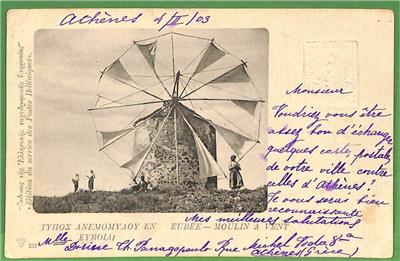 Athènes 4/II/03
"Ἔκδοσις τῆς Ἑλληνικῆς ταχυδρομικῆς ὑπηρεσίας"
"Edition du service des Postes Helléniques".
Monsieur
Voudriez vous être
assez bon d'échanger
quelques carte, postale
de votre ville contre
celles d'Athènes?
Je vous serai bien
reconnaissante
Mes meilleures salutations
ΤΥΠΟΣ ΑΝΕΜΟΜΥΛΟΥ ΕΝ
ΕΥΒΟΙΑι
EUBÉE — MOULIN A VENT
Mlle Ch. Panagopoulo Rue Michel
Athènes (Grèce)